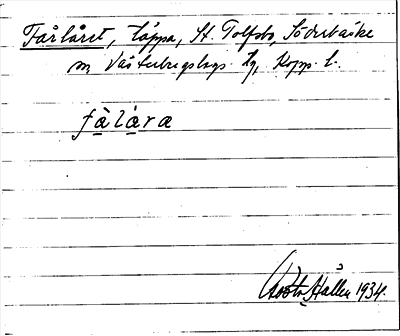 Fårlåret, täppa, St. Tolfsbo, Söderbärke
sn, Västerbergslags Dg, Kopp. l.
fàl̀ara
Gösta Hallén 1934